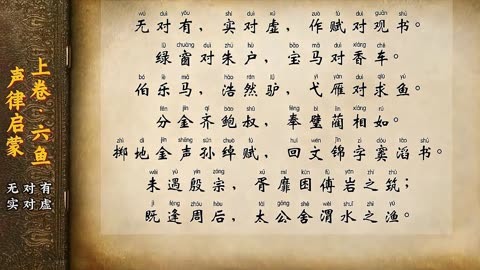 上卷 六鱼
声律启蒙
无对有
实对虚
wú duì yǒu shí duì xū zuò fù duì guān shū
无对有，实对虚，作赋对观书。
lǜ chuāng duì zhū hù bǎo mǎ duì xiāng chē
绿窗对朱户，宝马对香车。
bó lè mǎ hào rán lǘ yì yàn duì qiú yú
伯乐马，浩然驴，弋雁对求鱼。
fēn jīn qí bào shū fèng bì lìn xiāng rú
分金齐鲍叔，奉璧蔺相如。
zhì dì jīn shēng sūn chuò fù huí wén jǐn zì dòu tāo shū
掷地金声孙绰赋，回文锦字窦滔书。
wèi yù yīn zōng xū mí kùn fù yán zhī zhù
未遇殷宗，胥靡困傅岩之筑；
jì féng zhōu hòu tài gōng shě wèi shuǐ zhī yú
既逢周后，太公舍渭水之渔。